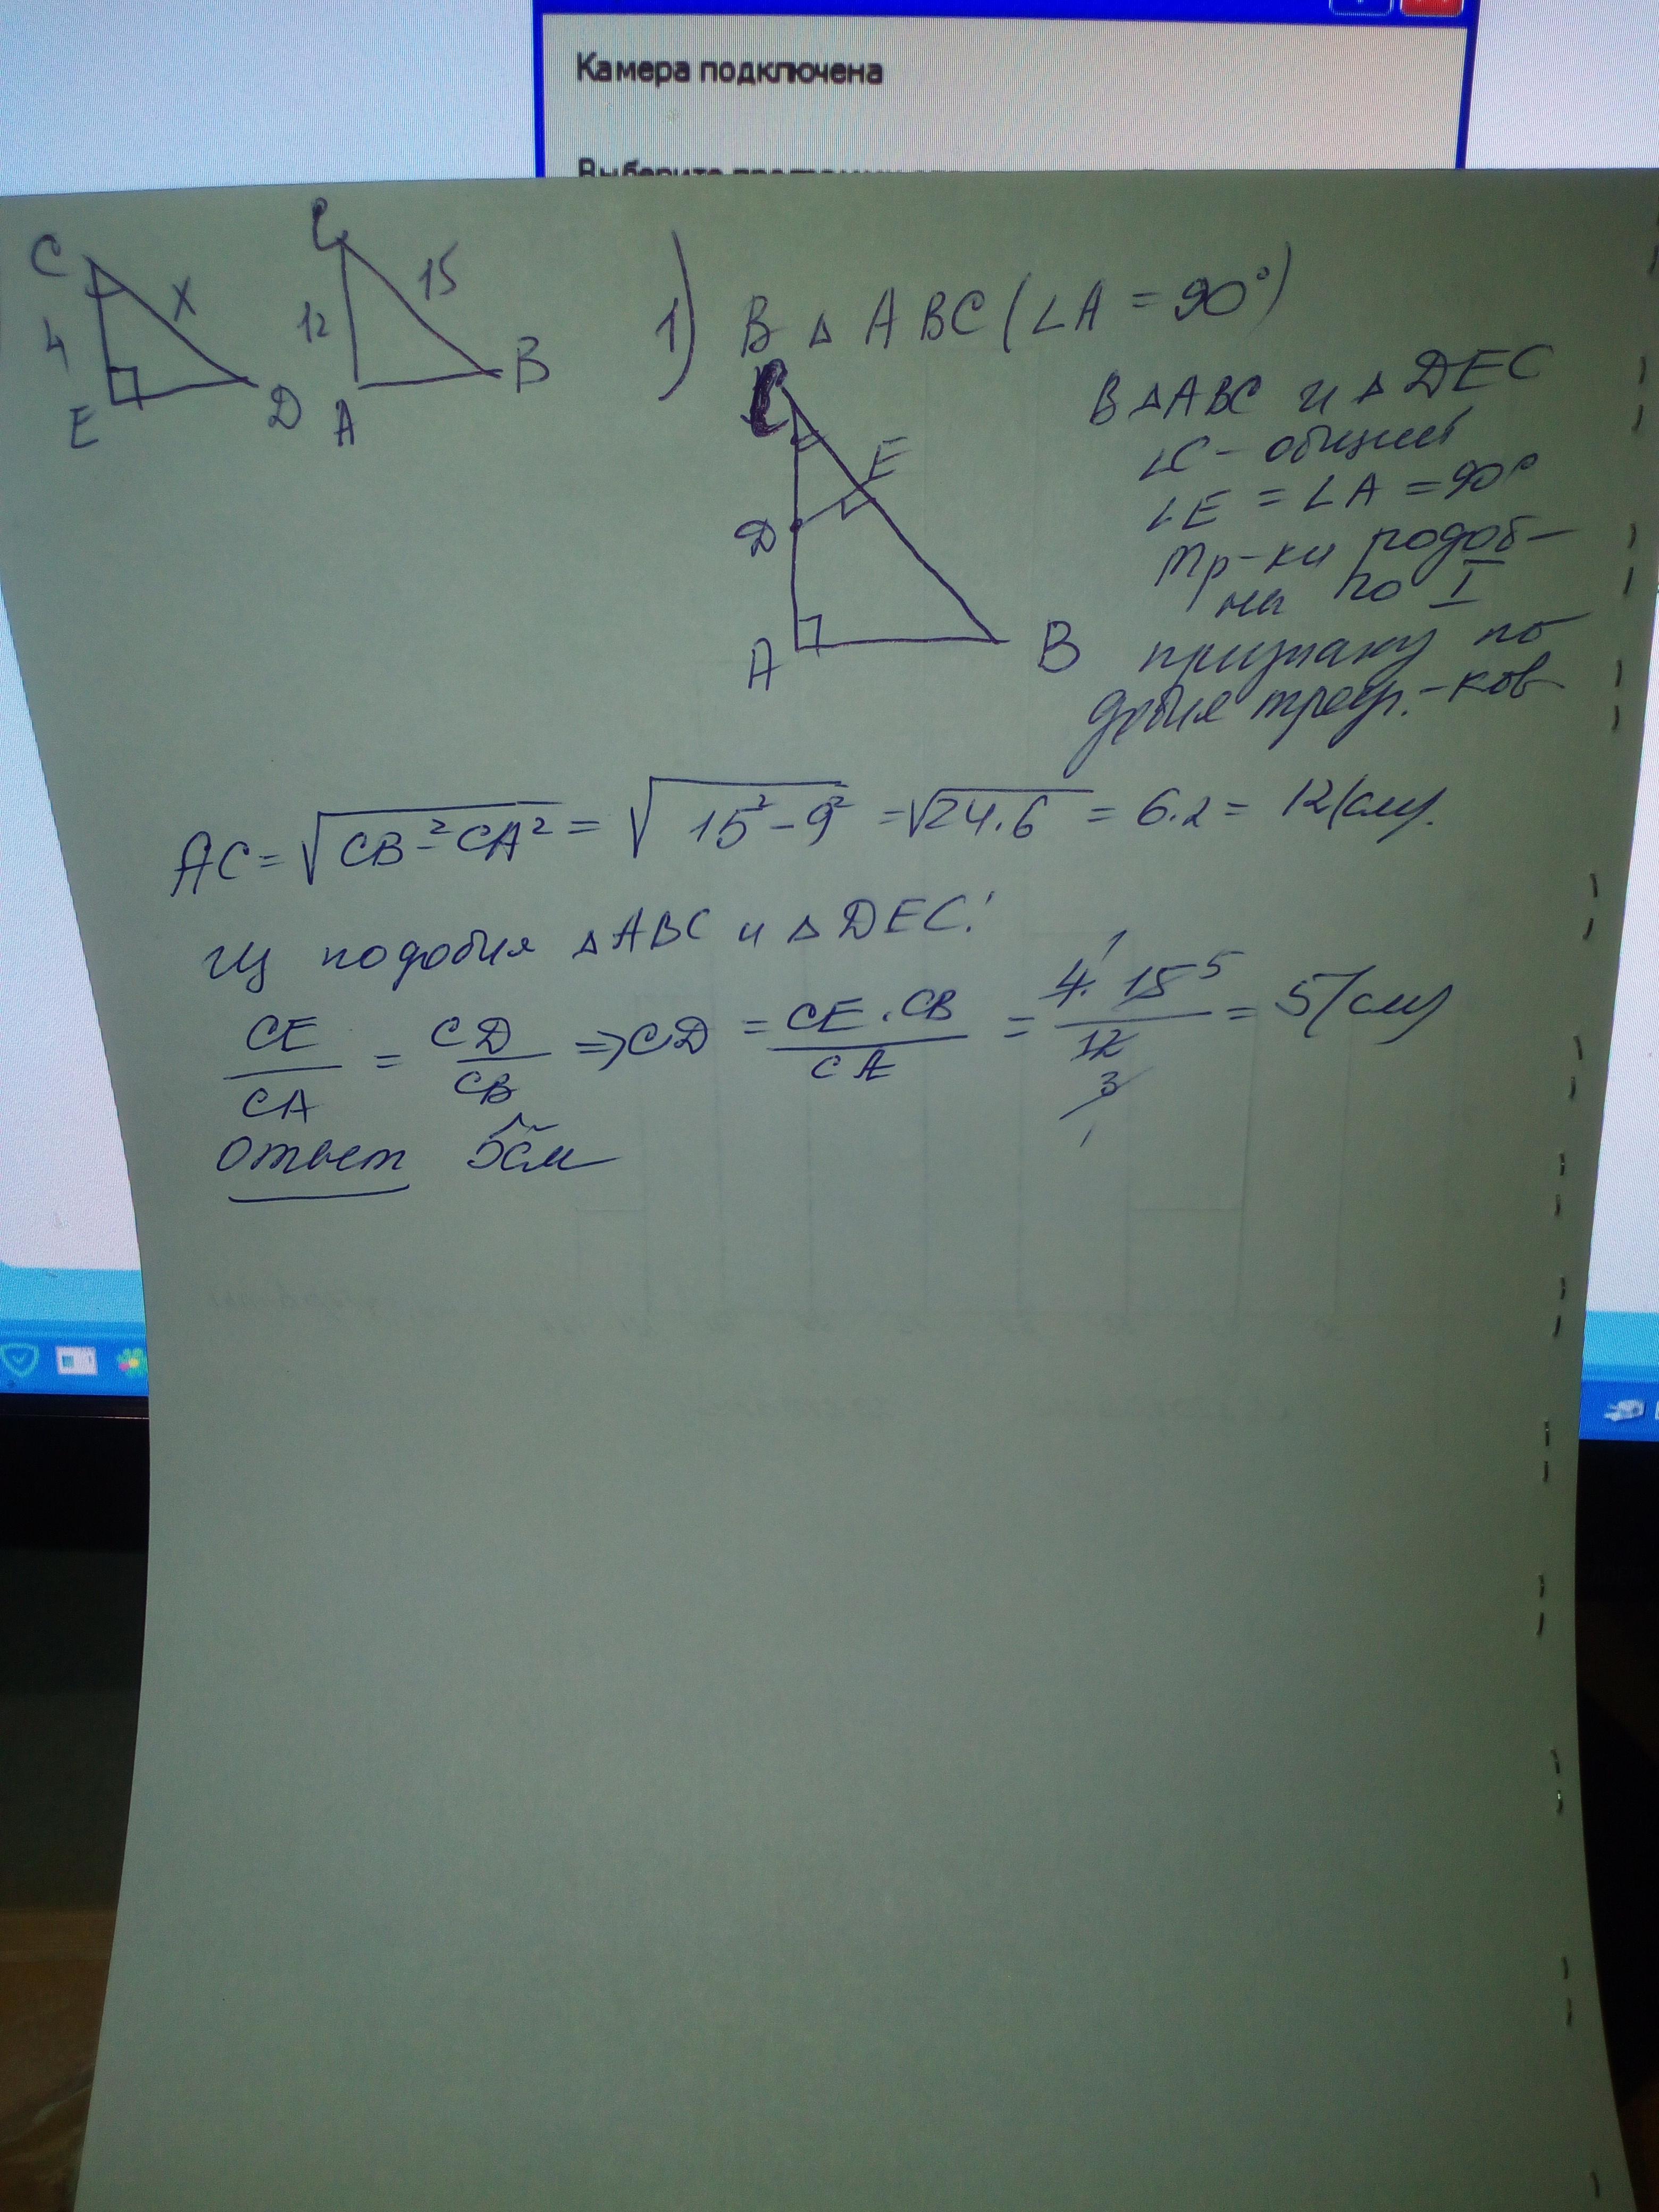 Камера подключена
C
X
4
E
D
C
15
12
A
B
1) В △ ABC (∠A = 90°)
C
E
D
A
B
В △ABC и △ DEC
∠C - общий
∠E = ∠A = 90°
тр-ки подоб-
ны по I
признаку по
добия треуг.-ков
AC = √(CB² - CA²) = √(15² - 9²) = √(24 · 6) = 6 · 2 = 12 (см).
Из подобия △ABC и △ DEC:
CE/CA = CD/CB ⇒ CD = CE · CB / CA = 4 · 15 / 12 = 5 (см)
1 5
3
1
Ответ 5см